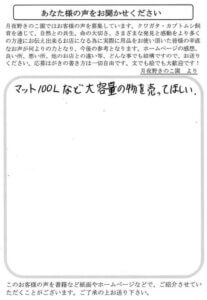 あなた様の声をお聞かせください
月夜野きのこ園ではお客様の声を募集しています。クワガタ・カブトムシ飼
育を通じて、自然との共生、命の大切さ、さまざまな発見と感動をより多く
の方達にお伝え出来るお店になる為に実際に用品をお使い頂いた皆様の率直
なお声が何よりの力となり、今後の参考となります。ホームページの感想、
良い所、悪い所、他のお店との違い等、どんな事でも結構ですので、お送り
下さい。応募はがきの書き方は一切自由です。文でも絵でも大歓迎です!
月夜野きのこ園 より
マット100Lなど大容量の物を売ってほしい。
このお客様の声を書籍など紙面やホームページなどで、ご紹介させてい
ただくことがございます。ご了承の上お送り下さい。